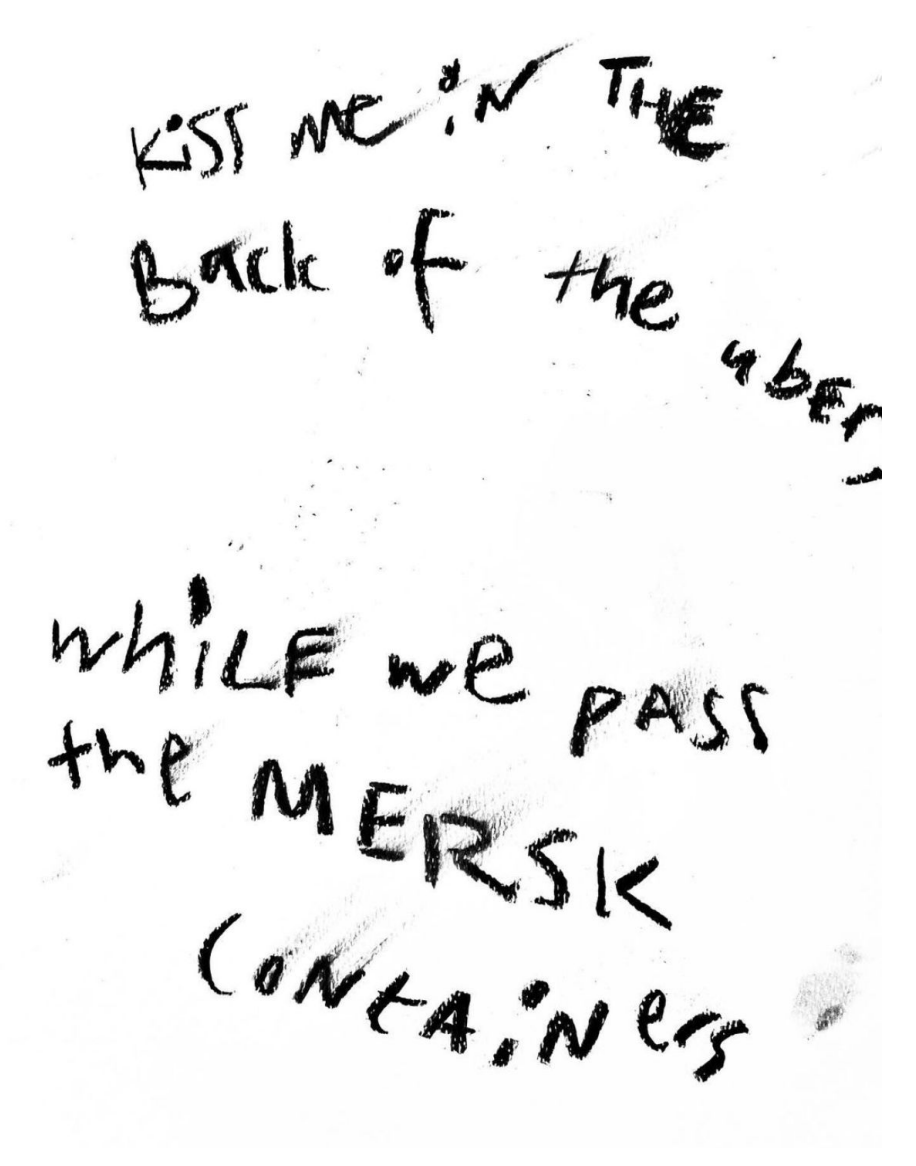 kiss me in THE
Back of the uber,
whiLE we pASS
the MERSK
CoNtAiNers